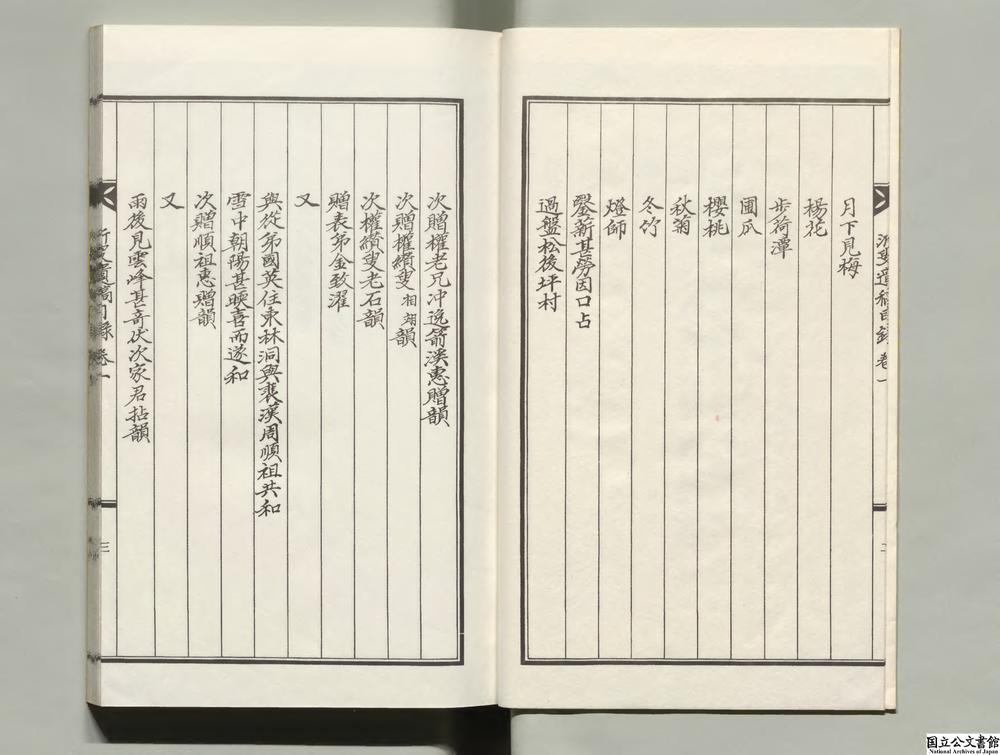 月下見梅
楊花
步荷潭
圃瓜
櫻桃
秋菊
冬竹
燈師
鑿薪甚勞因口占
過盤松後坪村
次贈權老兄冲逸箭溪惠贈韻
次贈權纘叟相翊韻
次權纘叟老石韻
贈表弟金致濯
又
與從弟國英住東林洞與裴漢周順祖共和
雪中朝陽甚暎喜而遂和
次贈順祖惠贈韻
又
雨後見雲峰甚奇伏次家君拈韻
目錄 卷一
三
国立公文書館
National Archives of Japan